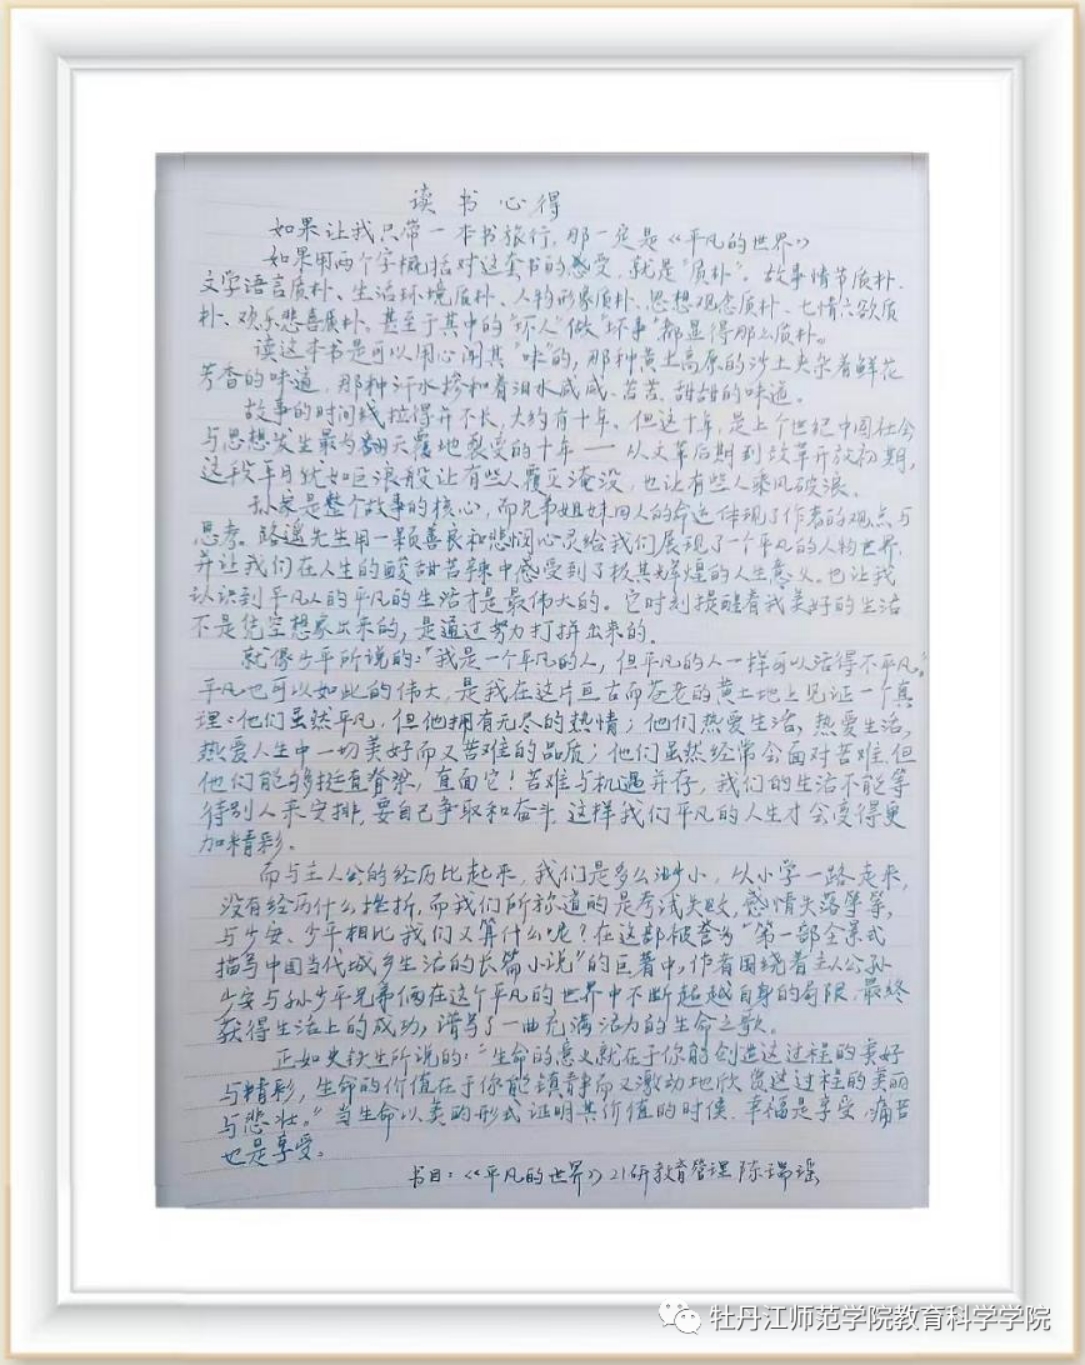 读书心得
如果让我只带一本书旅行,那一定是《平凡的世界》
如果用两个字概括对这套书的感受,就是"质朴"。故事情节质朴、
文学语言质朴、生活环境质朴、人物形象质朴、思想观念质朴、七情六欲质
朴、欢乐悲喜质朴。甚至于其中的"坏人"做"坏事"都显得那么质朴。
读这本书是可以用心闻其"味"的,那种黄土高原的沙土夹杂着鲜花
芳香的味道,那种汗水掺和着泪水咸咸、苦苦、甜甜的味道。
故事的时间线拉得并不长,大约有十年。但这十年,是上个世纪中国社会
与思想发生最为翻天覆地裂变的十年——从文革后期到改革开放初期,
这段年月犹如巨浪般让有些人覆灭淹没,也让有些人乘风破浪。
孙家是整个故事的核心,而兄弟姐妹四人的命运体现了作者的观点与
思考。路遥先生用一颗善良和悲悯心灵给我们展现了一个平凡的人物世界,
并让我们在人生的酸甜苦辣中感受到了极其辉煌的人生意义。也让我
认识到平凡人的平凡的生活才是最伟大的。它时刻提醒着我美好的生活
不是凭空想象出来的,是通过努力打拼出来的。
就像少平所说的:"我是一个平凡的人,但平凡的人一样可以活得不平凡。"
平凡也可以如此的伟大,是我在这片亘古而苍老的黄土地上见证一个真
理:他们虽然平凡,但他拥有无尽的热情;他们热爱生活,热爱生活,
热爱人生中一切美好而又苦难的品质;他们虽然经常会面对苦难,但
他们能够挺直脊梁,直面它!苦难与机遇并存,我们的生活不能等
待别人来安排,要自己争取和奋斗,这样我们平凡的人生才会变得更
加精彩。
而与主人公的经历比起来,我们是多么渺小,从小学一路走来,
没有经历什么挫折,而我们所称道的是考试失败,感情失落等等,
与少安、少平相比我们又算什么呢?在这部被誉为"第一部全景式
描写中国当代城乡生活的长篇小说"的巨著中,作者围绕着主人公孙
少安与孙少平兄弟俩在这个平凡的世界中不断超越自身的局限,最终
获得生活上的成功,谱写了一曲充满活力的生命之歌。
正如史铁生所说的:"生命的意义就在于你能创造这过程的美好
与精彩,生命的价值在于你能镇静而又激动地欣赏这过程的美丽
与悲壮。"当生命以美的形式证明其价值的时候,幸福是享受,痛苦
也是享受。
书目:《平凡的世界》21研教育管理 陈瑞瑶
牡丹江师范学院教育科学学院